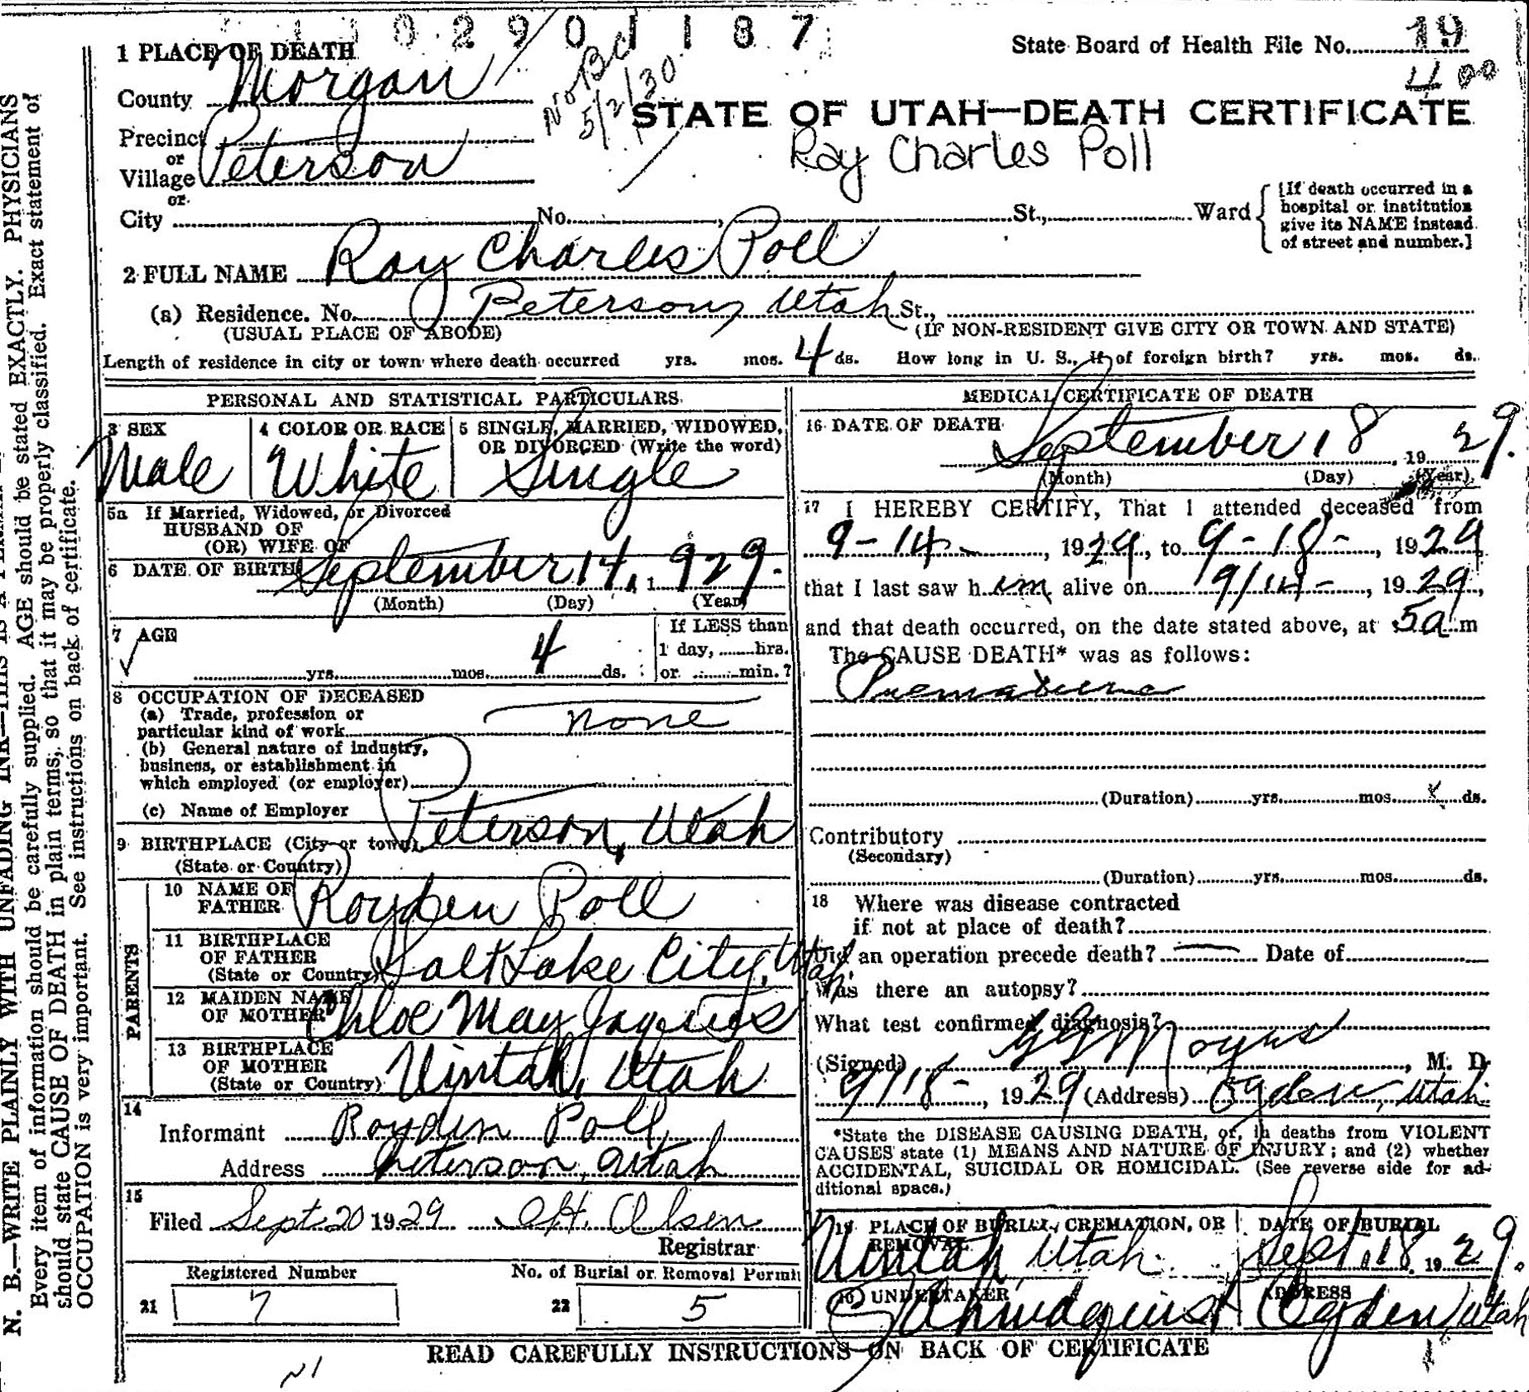 8 2 9 0 1 1 8 7
State Board of Health File No. 19
400
1 PLACE OF DEATH
County Morgan
No BC
5/2/30
STATE OF UTAH—DEATH CERTIFICATE
Ray Charles Poll
Precinct
or
Village Peterson
or
City No. , St., Ward
[If death occurred in a
hospital or institution
give its NAME instead
of street and number.]
2 FULL NAME Ray Charles Poll
(a) Residence. No. Peterson, Utah St.,
(USUAL PLACE OF ABODE) (IF NON-RESIDENT GIVE CITY OR TOWN AND STATE)
Length of residence in city or town where death occurred yrs. mos. 4 ds. How long in U. S., if of foreign birth? yrs. mos. ds.
PERSONAL AND STATISTICAL PARTICULARS
3 SEX
Male
4 COLOR OR RACE
White
5 SINGLE, MARRIED, WIDOWED,
OR DIVORCED (Write the word)
Single
5a If Married, Widowed, or Divorced
HUSBAND OF
(OR) WIFE OF
6 DATE OF BIRTH September 14, 1929.
(Month) (Day) (Year)
7 AGE
yrs. mos. 4 ds.
If LESS than
1 day, hrs.
or min.?
8 OCCUPATION OF DECEASED
(a) Trade, profession or
particular kind of work none
(b) General nature of industry,
business, or establishment in
which employed (or employer)
(c) Name of Employer
9 BIRTHPLACE (City or town) Peterson, Utah
(State or Country)
PARENTS
10 NAME OF
FATHER Royden Poll
11 BIRTHPLACE
OF FATHER
(State or Country) Salt Lake City, Utah.
12 MAIDEN NAME
OF MOTHER Chloe May Jaques
13 BIRTHPLACE
OF MOTHER
(State or Country) Uintah, Utah
14
Informant Royden Poll,
Address Peterson, Utah
15
Filed Sept 20 1929 Olsen
Registrar
Registered Number
21 7
No. of Burial or Removal Permit
22 5
MEDICAL CERTIFICATE OF DEATH
16 DATE OF DEATH
September 18 1929.
(Month) (Day) (Year)
17 I HEREBY CERTIFY, That I attended deceased from
9-14-, 1929, to 9-18-, 1929
that I last saw him alive on 9/14-, 1929,
and that death occurred, on the date stated above, at 5a m
The CAUSE DEATH* was as follows:
Premature
(Duration) yrs. mos. ds.
Contributory
(Secondary)
(Duration) yrs. mos. ds.
18 Where was disease contracted
if not at place of death?
Did an operation precede death? Date of
Was there an autopsy?
What test confirmed diagnosis?
(Signed) , M. D.
9/18-, 1929 (Address) Ogden, Utah
*State the DISEASE CAUSING DEATH, or, in deaths from VIOLENT
CAUSES state (1) MEANS AND NATURE OF INJURY; and (2) whether
ACCIDENTAL, SUICIDAL OR HOMICIDAL. (See reverse side for ad-
ditional space.)
19 PLACE OF BURIAL, CREMATION, OR
REMOVAL
Uintah, Utah.
DATE OF BURIAL
Sept. 18. 1929.
20 UNDERTAKER
ADDRESS
Ogden, Utah
READ CAREFULLY INSTRUCTIONS ON BACK OF CERTIFICATE
N. B.—WRITE PLAINLY WITH UNFADING INK—THIS IS A
Every item of information should be carefully supplied. AGE should be stated EXACTLY. PHYSICIANS
should state CAUSE OF DEATH in plain terms, so that it may be properly classified. Exact statement of
OCCUPATION is very important. See instructions on back of certificate.